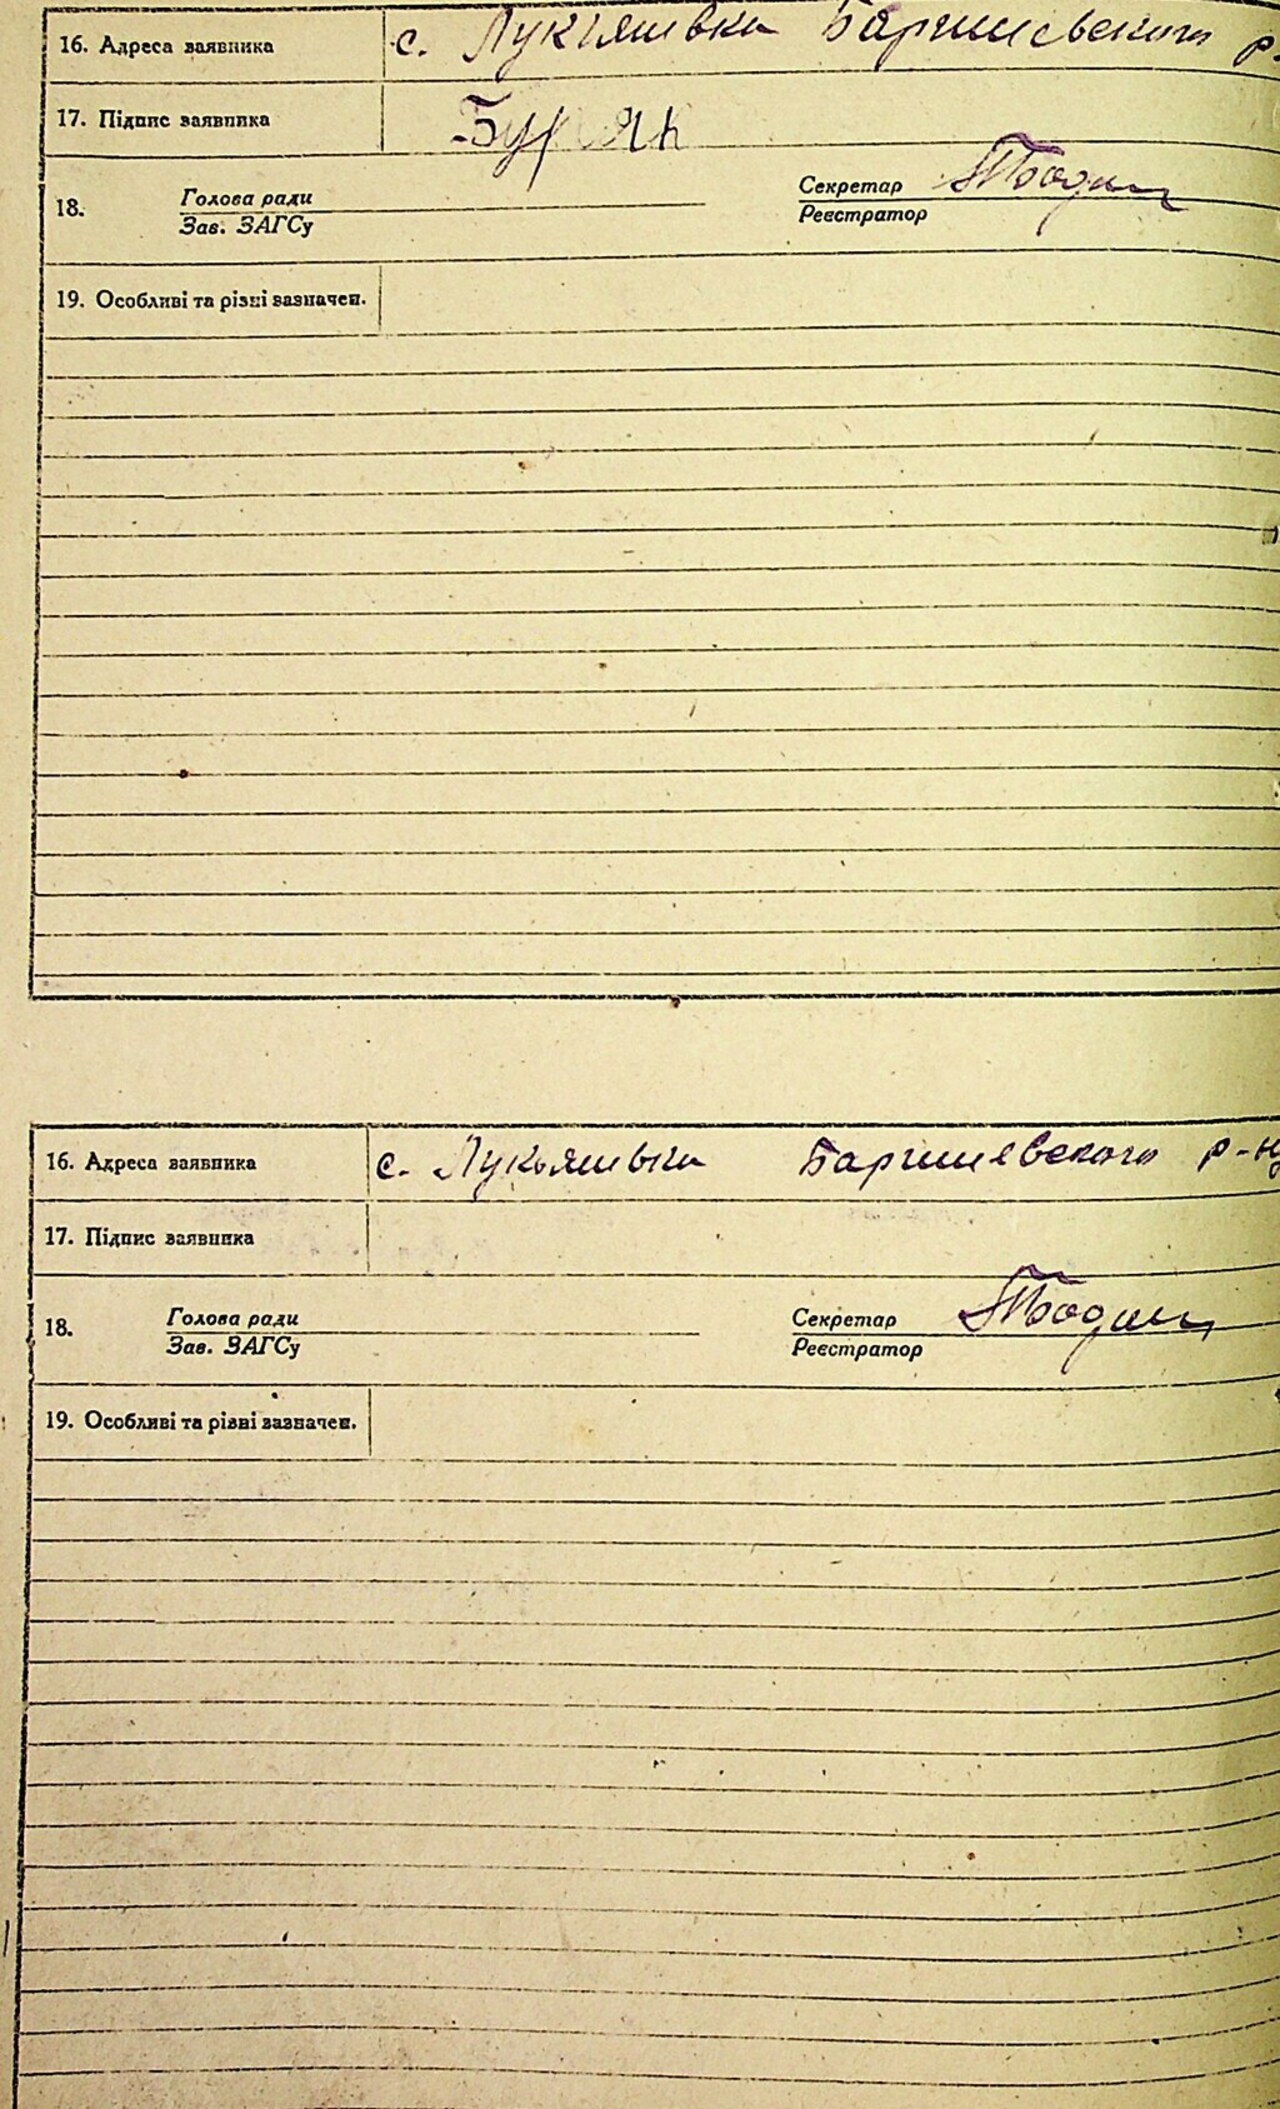 16. Адреса заявника с. Лукяшвка Баришевского р.
17. Підпис заявника Буряк
18. Голова ради Секретар
Зав. ЗАГСу Реєстратор
19. Особливі та різні зазначен.
16. Адреса заявника с. Лукьяшвка Баришевского р-ну
17. Підпис заявника
18. Голова ради Секретар
Зав. ЗАГСу Реєстратор
19. Особливі та різні зазначен.